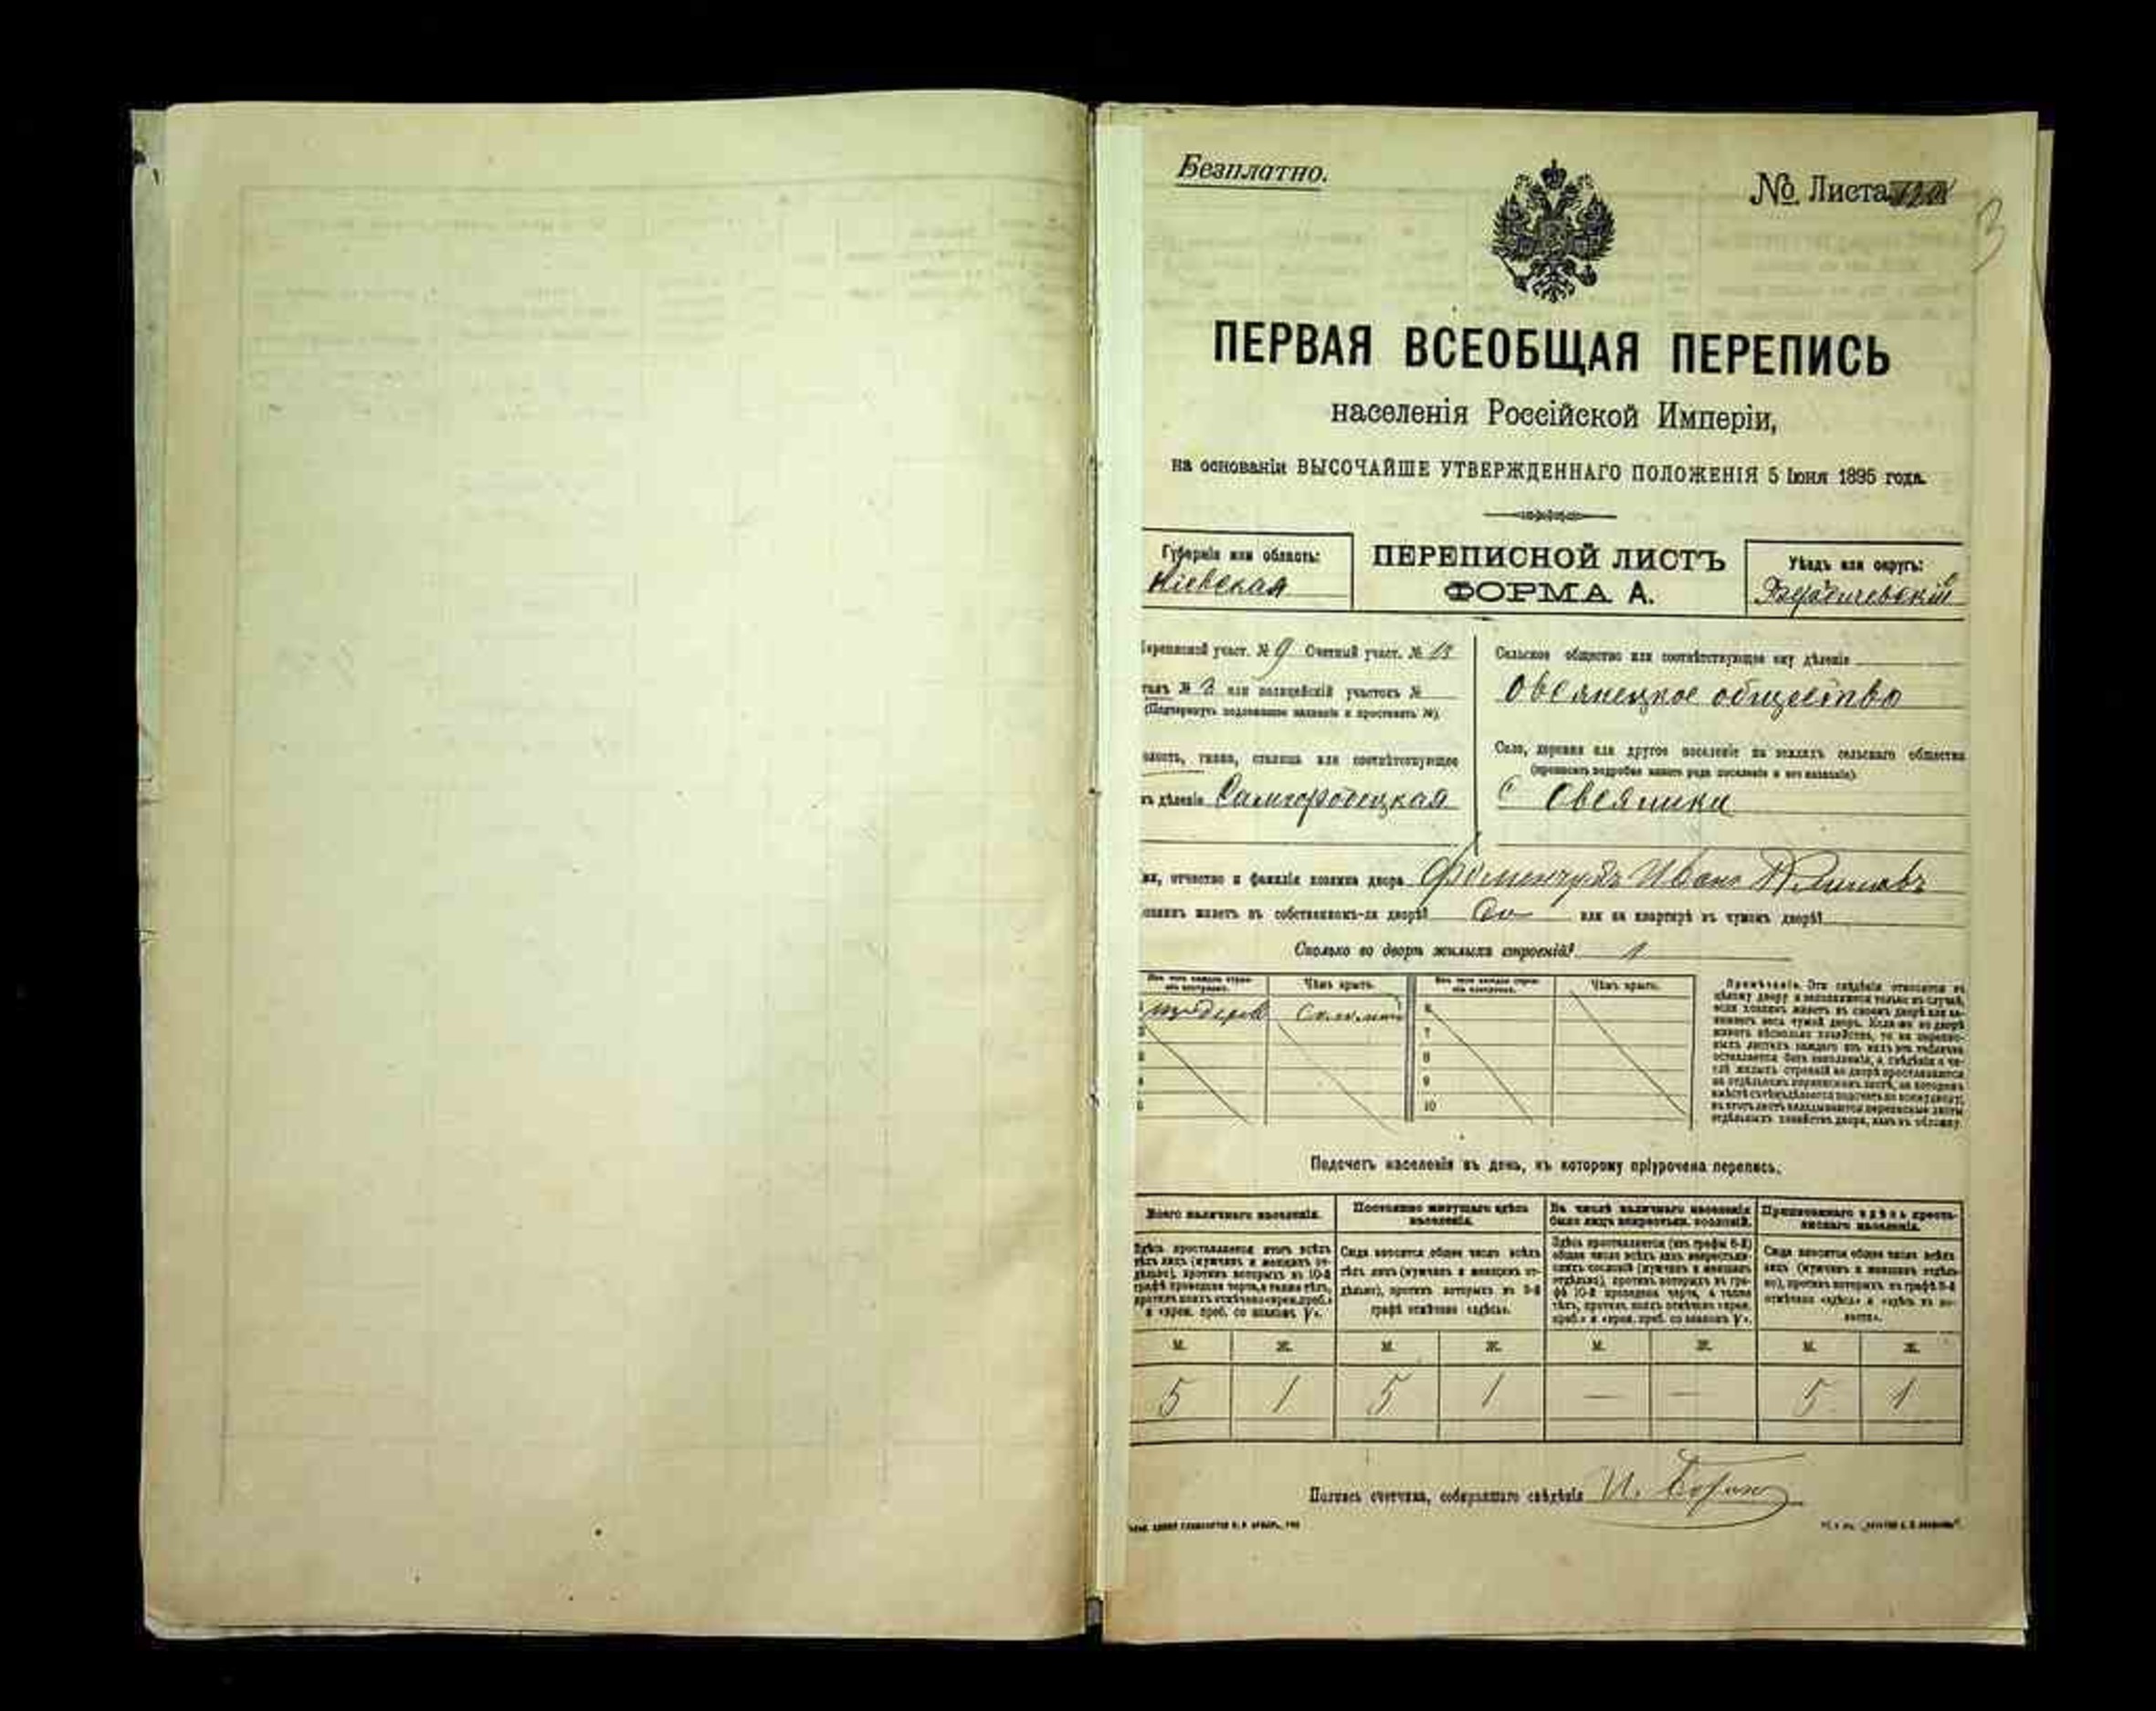 Безплатно.
№ Листа
3
ПЕРВАЯ ВСЕОБЩАЯ ПЕРЕПИСЬ
населенія Россійской Имперіи,
на основаніи ВЫСОЧАЙШЕ УТВЕРЖДЕННАГО ПОЛОЖЕНІЯ 5 Іюня 1895 года.
Губернія или область:
Кіевская
ПЕРЕПИСНОЙ ЛИСТЪ
ФОРМА А.
Уѣздъ или округъ:
Бердичевскій
ереписной участ. № 9 Счетный участ. № 13
танъ № 3 или полицейскій участокъ №
(Подчеркнуть подлежащее названіе и проставить №).
олость, гмина, станица или соотвѣтствующее
ъ дѣленіе Самгородецкая
Сельское общество или соотвѣтствующее ему дѣленіе
Овсянецкое общество
Село, деревня или другое поселеніе на земляхъ сельскаго общества
(прописать подробно какого рода поселеніе и его названіе).
с Овсяники
мя, отчество и фамилія хозяина двора Фоменчукъ Иванъ
озяинъ живетъ въ собственномъ-ли дворѣ? Да или на квартирѣ въ чужомъ дворѣ?
Сколько во дворѣ жилыхъ строеній? 1
Изъ чего каждое строе-
ніе построено.
Чѣмъ крыто.
Изъ чего каждое строе-
ніе построено.
Чѣмъ крыто.
Соломой
6
7
8
9
10
Примѣчаніе. Эти свѣдѣнія относятся къ
цѣлому двору и заполняются только въ случаѣ,
если хозяинъ живетъ въ своемъ дворѣ или за-
нимаетъ весь чужой дворъ. Если-же во дворѣ
живетъ нѣсколько хозяйствъ, то на перепис-
ныхъ листахъ каждаго изъ нихъ эта табличка
оставляется безъ заполненія, а свѣдѣнія о чи-
слѣ жилыхъ строеній во дворѣ проставляются
на отдѣльномъ переписномъ листѣ, на которомъ
въ этотъ листъ вкладываются переписные листы
отдѣльныхъ хозяйствъ двора, какъ въ обложку.
Подсчетъ населенія въ день, къ которому пріурочена перепись.
Всего наличнаго населенія.
Постоянно живущаго здѣсь
населенія.
Въ числѣ наличнаго населенія
было лицъ некрестьян. сословій.
Приписаннаго здѣсь кресть-
янскаго населенія.
Здѣсь проставляется итогъ всѣхъ
тѣхъ лицъ (мужчинъ и женщинъ от-
дѣльно), противъ которыхъ въ 10-й
графѣ проведена черта, а также тѣхъ,
противъ коихъ отмѣчено «врем. преб.»
и «врем. преб. со знакомъ V».
Сюда вносится общее число всѣхъ
тѣхъ лицъ (мужчинъ и женщинъ от-
дѣльно), противъ которыхъ въ 9-й
графѣ отмѣчено «здѣсь».
Здѣсь проставляется (изъ графы 6-й)
общее число всѣхъ лицъ некрестьян-
скихъ сословій (мужчинъ и женщинъ
отдѣльно), противъ которыхъ въ гра-
фѣ 10-й проведена черта, а также
тѣхъ, противъ коихъ отмѣчено «врем.
преб.» и «врем. преб. со знакомъ V».
Сюда вносится общее число всѣхъ
лицъ (мужчинъ и женщинъ отдѣль-
но), противъ которыхъ въ графѣ 8-й
отмѣчено «здѣсь» и «здѣсь въ во-
лости».
М. Ж. М. Ж. М. Ж. М. Ж.
5 1 5 1 — — 5 1
Подпись счетчика, собиравшаго свѣдѣнія И.